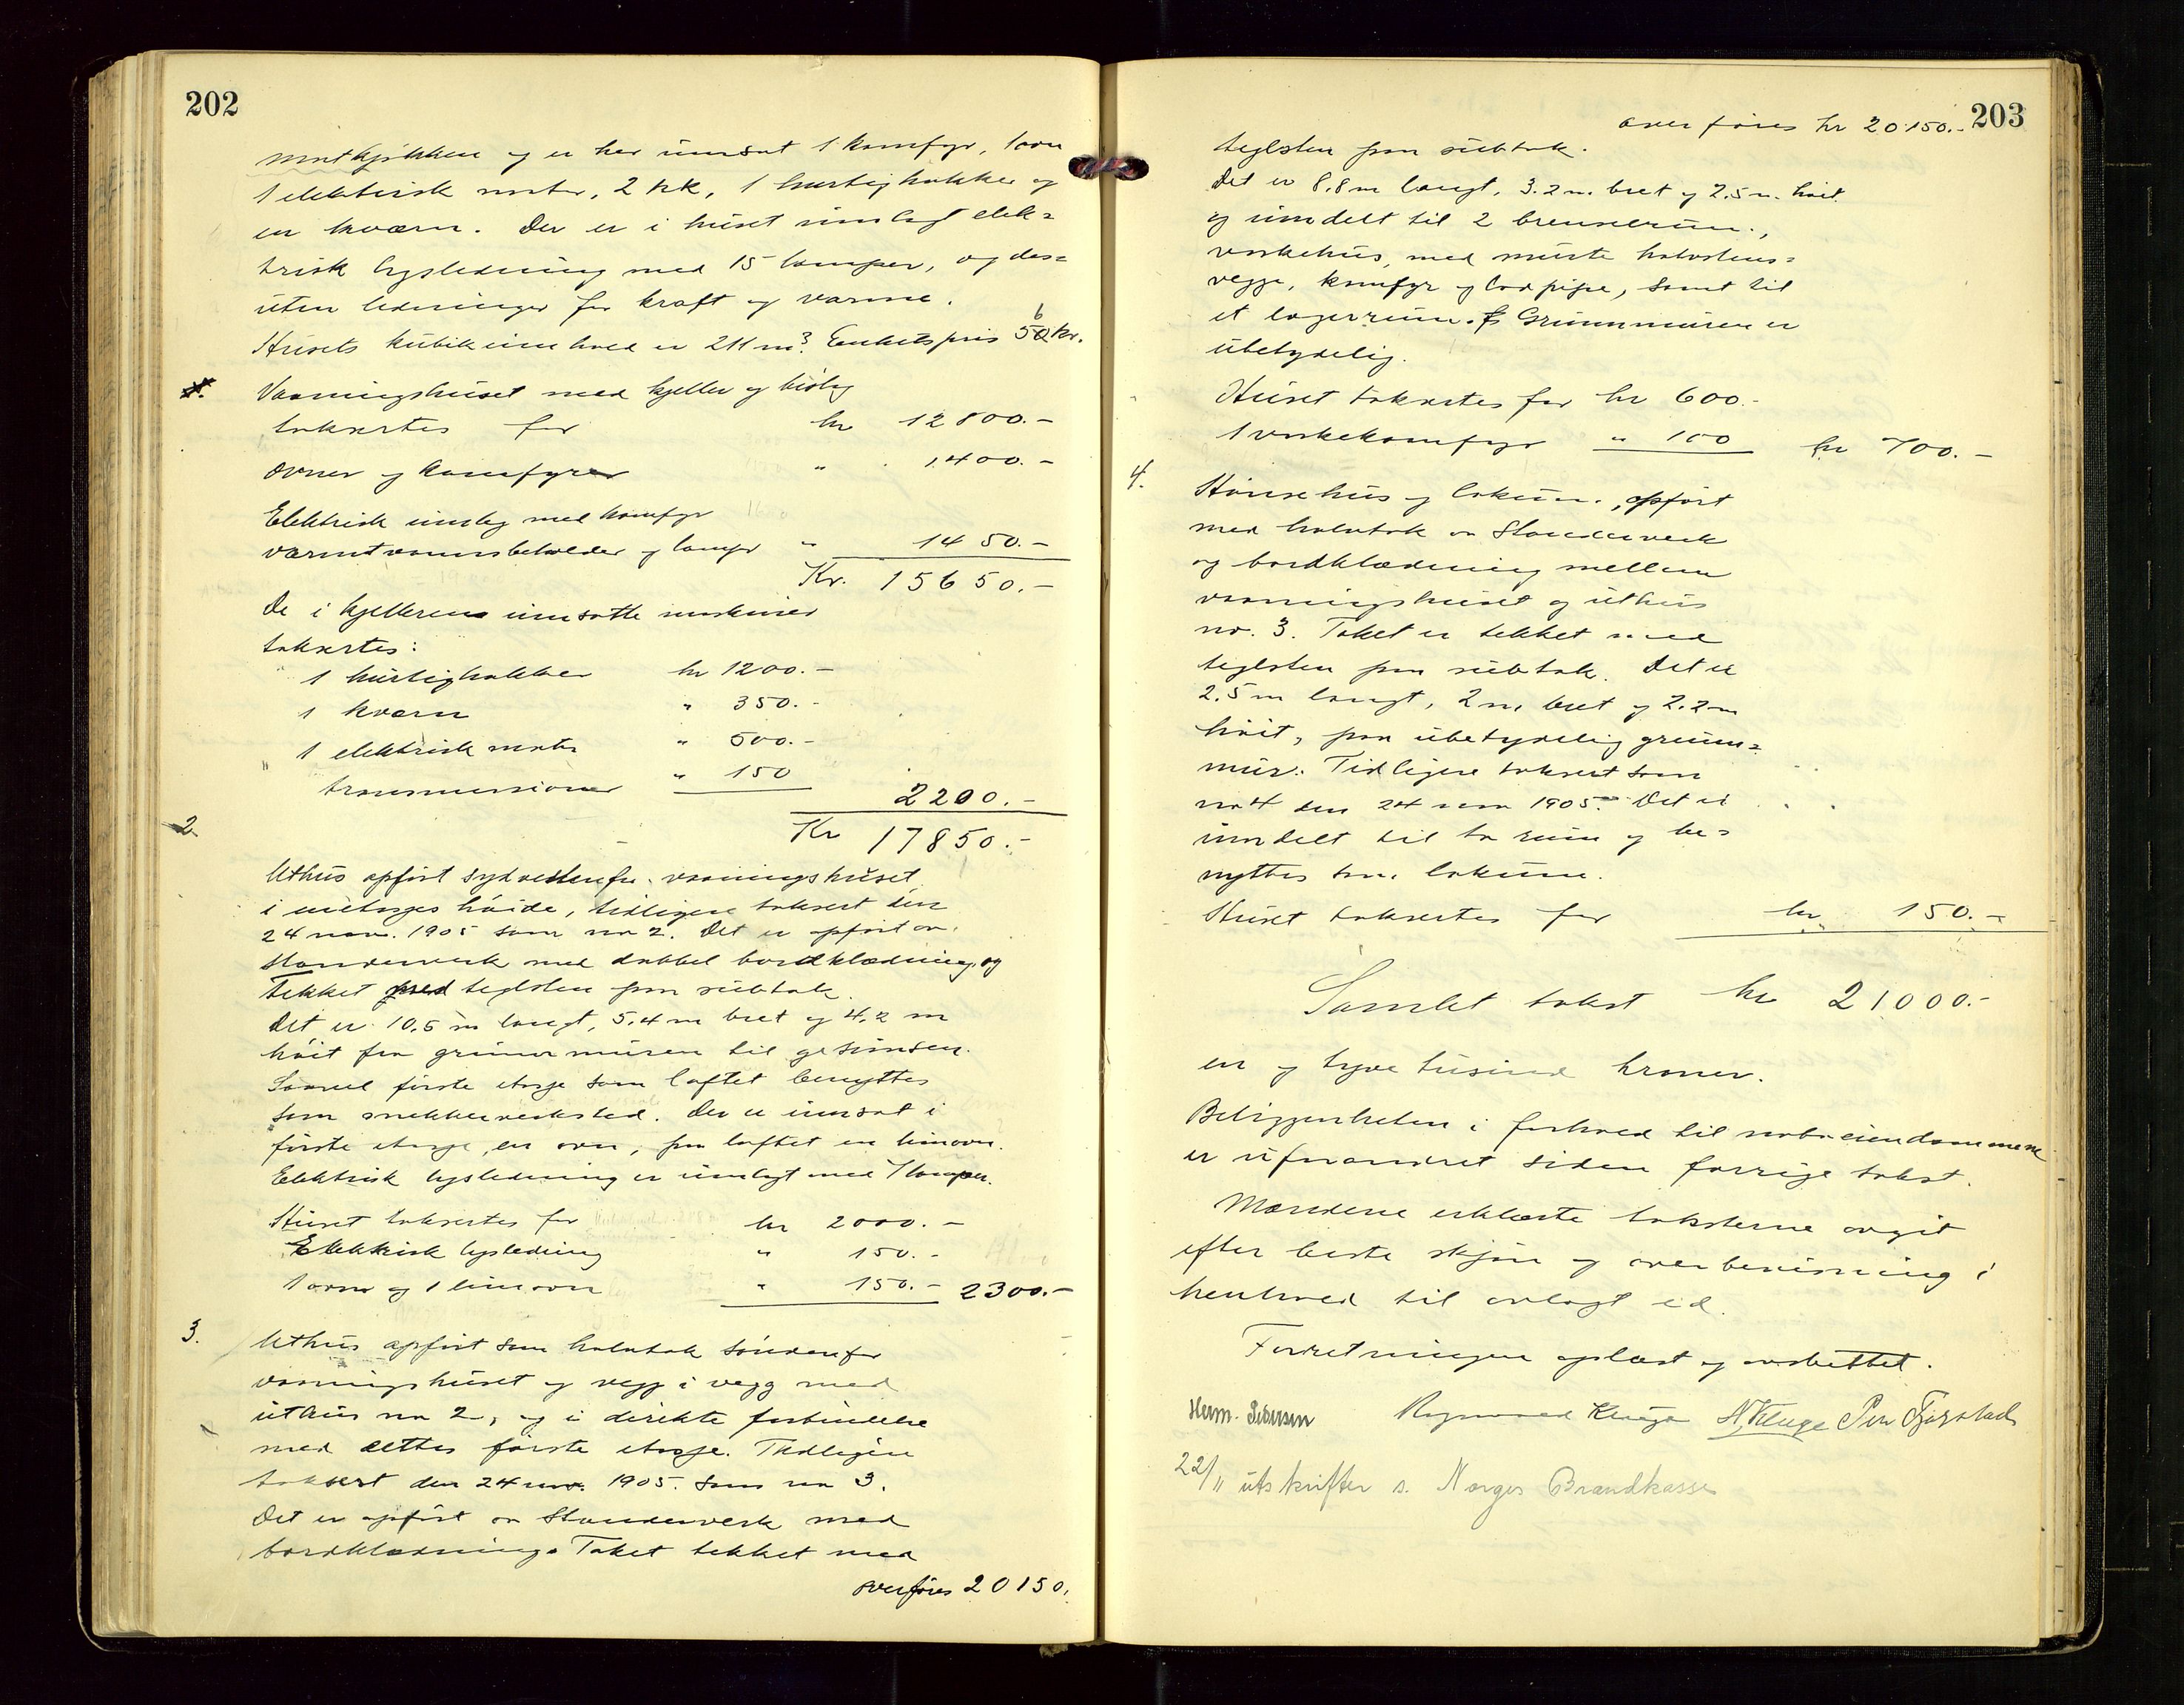 202
matkjökken og er her innsat 1 komfyr, 1 ovn
1 elektrisk motor, 2 hk, 1 hurtighakker og
en kværn. Der er i huset innlagt elek=
trisk lysledning med 15 lamper, og des=
uten ledninger for kraft og varme.
Husets kubikinnhold er 211 m³. Enhetspris 56 kr.
1. Vaaningshuset med kjeller og bislag
taksertes for kr 12800.-
Ovner og komfyrer " 1400.-
Elektrisk innlegg med komfyr
varmtvannsbeholder og lamper " 1450.-
Kr. 15650.-
De i kjelleren innsatte maskiner
taksertes:
1 hurtighakker kr 1200.-
1 kværn " 350.-
1 elektrisk motor " 500.-
transmissioner " 150
2200.-
Kr 17850.-
2.
Uthus opfört sydvestenfor vaaningshuset
i en etasjes höide, tidligere taksert den
24 nov. 1905 som no 2. Det er opfört av
standerverk med dobbel bordklædning, og
tekket med teglsten paa subtak.
Det er 10,5 m langt, 5,4 m bret og 4,2 m
höit fra grunnmuren til gesimsen.
Saavel förste etasje som loftet benyttes
som snekkerverksted. Der er innsat i
förste etasje en ovn, paa loftet en limovn.
Elektrisk lysledning er innlagt med 7 lamper.
Huset taksertes for kr 2000.-
Elektrisk lysledning " 150.-
1 ovn og 1 limovn " 150.- 2300.-
3. Uthus opfört som halvtak söndenfor
vaaningshuset og vegg i vegg med
uthus no 2, og i direkte forbindelse
med dettes förste etasje. Tidligere
taksert den 24 nov. 1905. som no 3.
Det er opfört av standerverk med
bordklædning. Taket tekket med
overföres 20150.
203
overföres kr 20150.-
teglsten paa subtak.
Det er 8,8 m langt, 3.2 m. bret og 2,5 m. höit
og inndelt til 2 brenselrum,
vaskehus, med murte halvstens=
vegge, komfyr og lodpipe, samt til
et lagerrum. Grunnmuren er
ubetydelig.
Huset taksertes for kr 600.-
1 vaskekomfyr " 100 kr 700.-
4. Hönsehus og lokum, opfört
med halvtak av standerverk
og bordklædning mellem
vaaningshuset og uthus
no. 3. Taket er tekket med
teglsten paa subtak. Det er
2.5 m langt, 2 m bret og 2.2 m
höit, paa ubetydelig grunn=
mur. Tidligere taksert som
no 4 den 24 nov 1905. Det er
inndelt til to rum og be=
nyttes som lokum.
Huset taksertes for kr 150.-
Samlet takst kr 21000.-
en og tyve tusind kroner.
Beliggenheten i forhold til naboeiendommene
er uforandret siden forrige takst.
Mændene erklærte taksterne avgit
efter beste skjön og overbevisning i
henhold til avlagt ed.
Forretningen oplæst og avsluttet.
Herm. Pedersen Kluge N. Kluge Per Fjogstad
22/11 utskrifter s. Norges Brandkasse